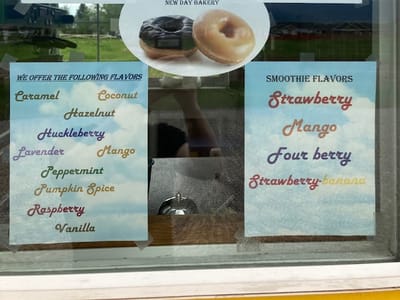 NEW DAY BAKERY
WE OFFER THE FOLLOWING FLAVORS
Caramel Coconut
Hazelnut
Huckleberry
Lavender Mango
Peppermint
Pumpkin Spice
Raspberry
Vanilla
SMOOTHIE FLAVORS
Strawberry
Mango
Four berry
Strawberry-banana